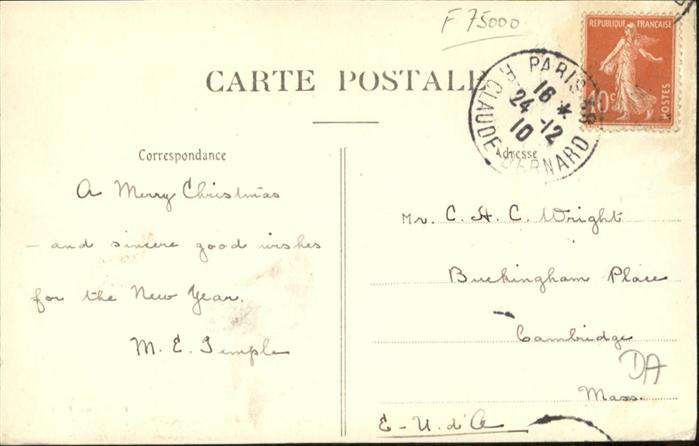 F 75000
REPUBLIQUE FRANÇAISE
10c
POSTES
CARTE POSTALE
PARIS
R. CLAUDE BERNARD
16 *
24 -12
10
Correspondance
A Merry Christmas
- and sincere good wishes
for the New Year.
M. E. Temple
Adresse
Mr. C. H. C. Wright
Buckingham Place
Cambridge
Mass.
E-U. d'A
DA